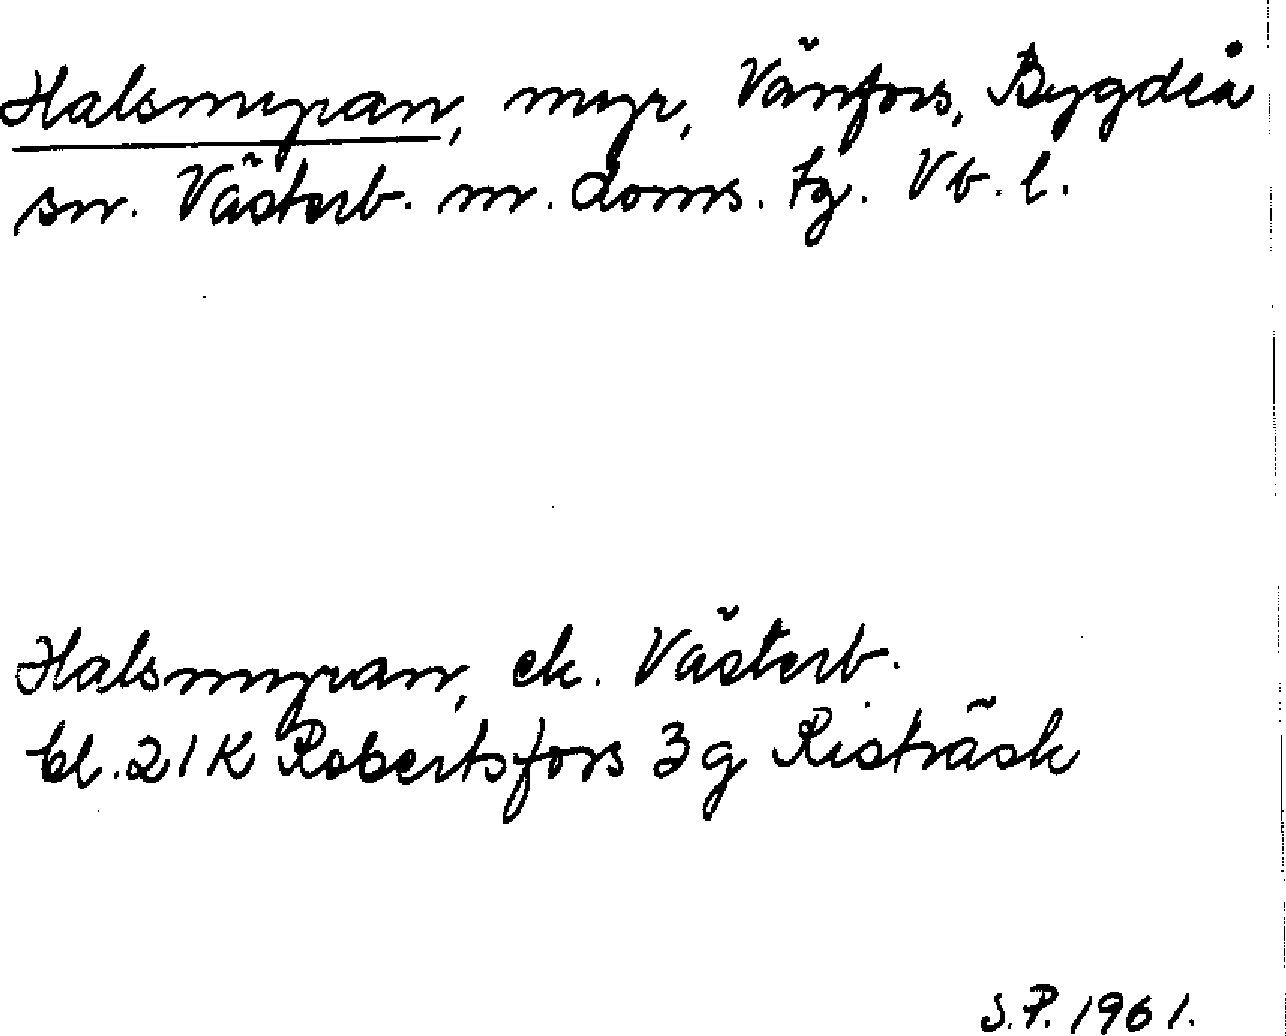 Halsmyran, myr, Vänfors, Bygdeå
sn. Västerb. n. doms. tg. Vb. l.
Halsmyran, ek. Västerb.
bl. 21K Robertsfors 3g Risträsk
S.P. 1961.